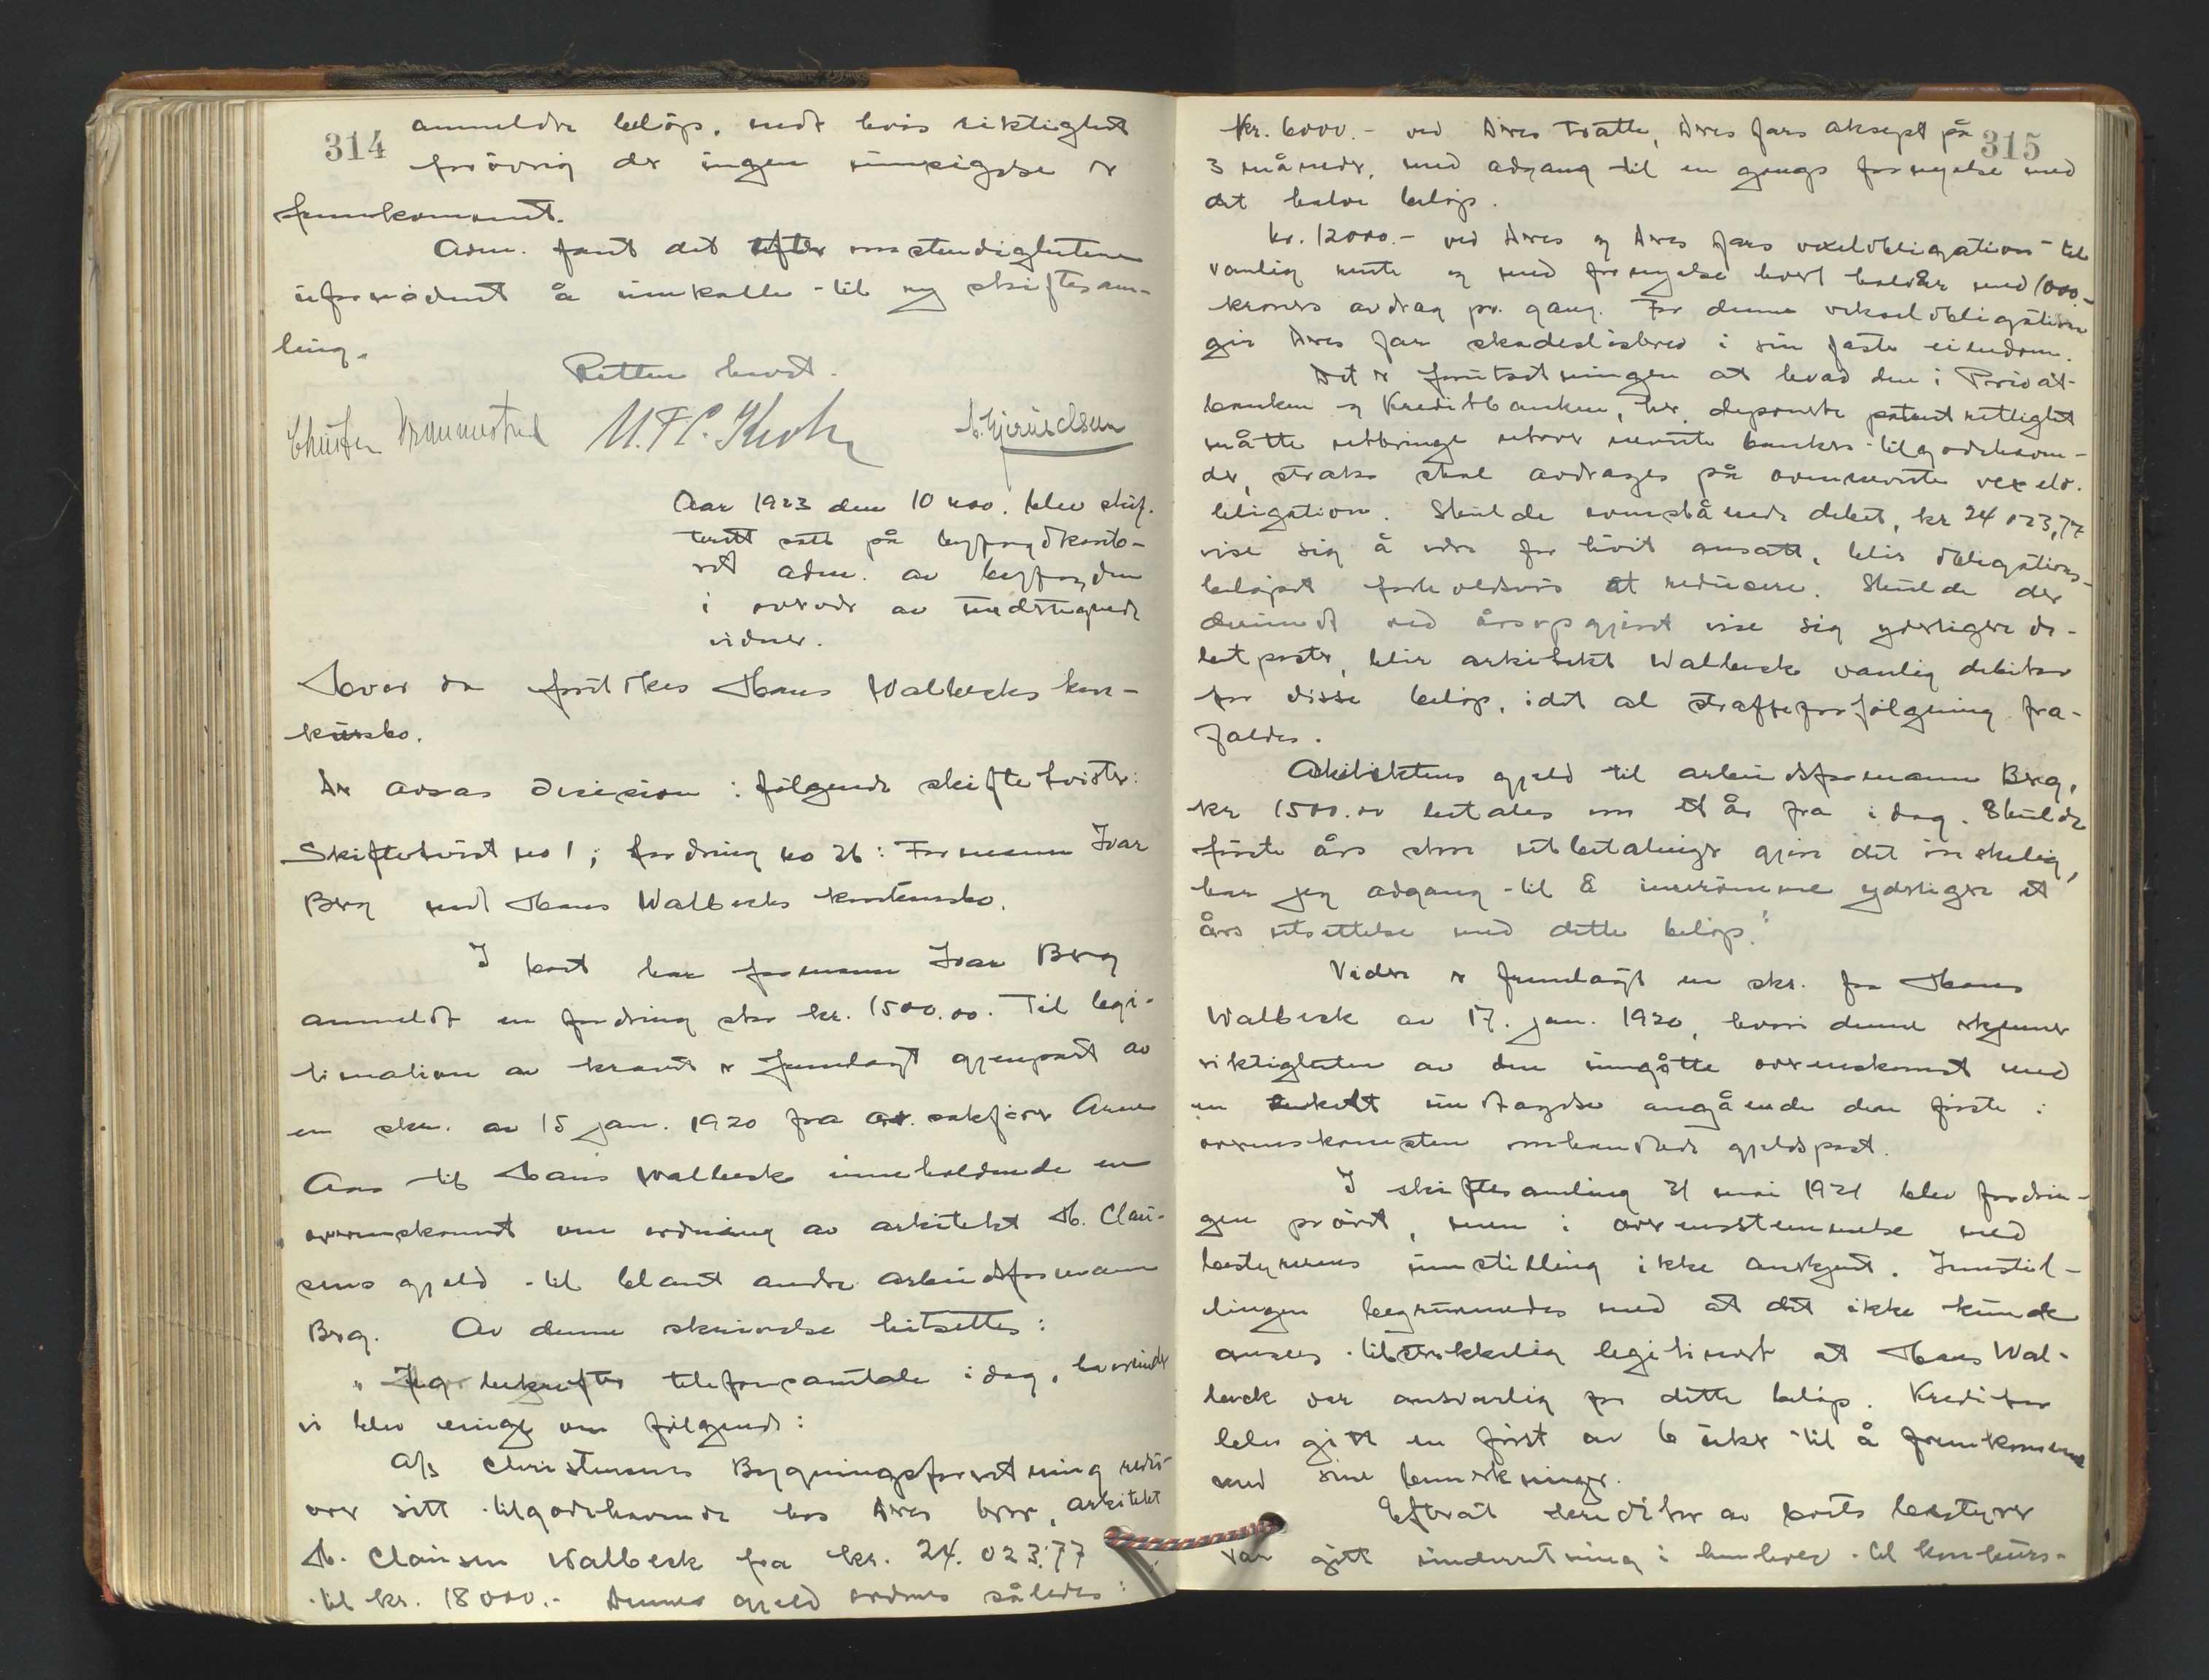 314
anmeldte beløp, mot hvis riktighet
forøvrig der ingen innsigelse er
fremkommet.
Adm. fant det efter omstendighetene
ufornødent å innkalle til ny skiftesam-
ling.
Retten hevet.
M.F.C. Koch
Aar 1923 den 10 nov. blev skif-
terett satt på byfogdkonto-
ret adm. av byfogden
i overvær av undertegnede
vidner.
Hvor da foretokes Hans Walbecks kon-
kursbo.
Der avsas decision i følgende skiftetvister:
Skiftetvist no 1; fordring no 26: Formann Ivar
Berg mot Hans Walbecks konkursbo.
I boet har formann Ivar Berg
anmeldt en fordring stor kr. 1500.00. Til legi-
timation av kravet er fremlagt gjenpart av
en skr. av 15 jan. 1920 fra o.r.sakfører Arne
Aas til Hans Walbeck inneholdende en
overenskomst om ordning av arkitekt H. Clau-
sens gjeld til blant andre arbeidsformann
Berg. Av denne skrivelse hitsettes:
"Jeg bekrefter telefonsamtale idag, hvorunder
vi blev enige om følgende:
A/s Christensens Bygningsforretning redu-
cerer sitt tilgodehavende hos Deres bror, arkitekt
H. Clausen Walbeck fra kr. 24.023,77
til kr. 18000.- Dennes gjeld ordnes således:
315
Kr. 6000.- ved Deres tratte, Deres fars aksept på
3 måneder, med adgang til en gangs fornyelse med
det halve beløp.
kr. 12000.- ved Deres og Deres fars vexelobligation til
vanlig rente og med fornyelse hvert halvår med 1000-
kroners avdrag pr. gang. For denne vekselobligation
gir Deres far skadesløsbrev i sin faste eiendom.
Det er forutsetningen at hvad den i Privat-
banken og Kreditbanken, her, deponerte patentrettighet
måtte utbringe utover nevnte bankers tilgodehaven-
der, straks skal avdrages på ovennevnte vexelo-
bligation. Skulde ovenstående debet, kr 24023,77
vise sig å være for høit ansatt, blir obligations-
beløpet forholdsvis at reducere. Skulde der
derimot ved årsopgjøret vise sig yderligere de-
betposter, blir arkitekt Walbeck vanlig debitor
for disse beløp, idet al strafforfølgning fra-
faldes.
Arkitektens gjeld til arbeidsformann Berg,
kr 1500.00 betales om et år fra idag. Skulde
første års store utbetalinger gjøre det ønskelig,
har jeg adgang til å innrømme yderligere et
års utsettelse med dette beløp."
Videre er fremlagt en skr. fra Hans
Walbeck av 17. jan. 1920, hvori denne erkjenner
riktigheten av den inngåtte overenskomst med
en enkelt undtagelse angående den første i
overenskomsten omhandlede gjeldspost.
I skiftesamling 31 mai 1921 blev fordrin-
gen prøvet, men i overensstemmelse med
bestyrerens innstilling ikke anerkjent. Innstil-
lingen begrunnedes med at det ikke kunde
ansees tilstrekkelig legitimert at Hans Wal-
beck var ansvarlig for dette beløp. Kreditor
blev gitt en frist av 6 uker til å fremkomme
med sine bemerkninger.
Efterat kreditor av boets bestyrer
var gitt underretning i henhold til konkurs-